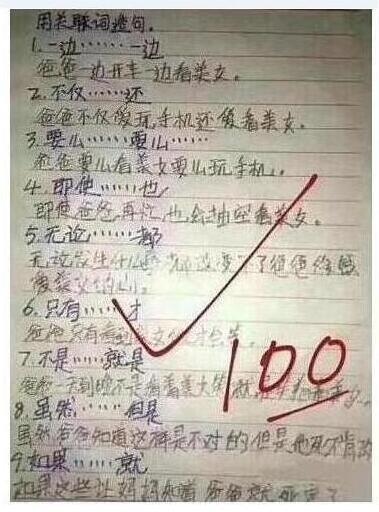 用关联词造句。
1.一边……一边
爸爸一边开车一边看美女。
2.不仅……还
爸爸不仅爱玩手机还爱看美女。
3.要么……要么……
爸爸要么看美女要么玩手机。
4.即使……也
即使爸爸再忙也会抽空看美女。
5.无论……都
无论发生什么 都改变不了爸爸
爱美女的心。
6.只有……才
爸爸只有看到美女 才会笑。
7.不是……就是
爸爸一天到晚不是看着美女笑就
8.虽然……但是
虽然爸爸知道这样是不对的但是他死不肯改
9.如果……就
如果这些让妈妈知道爸爸就死定了
100